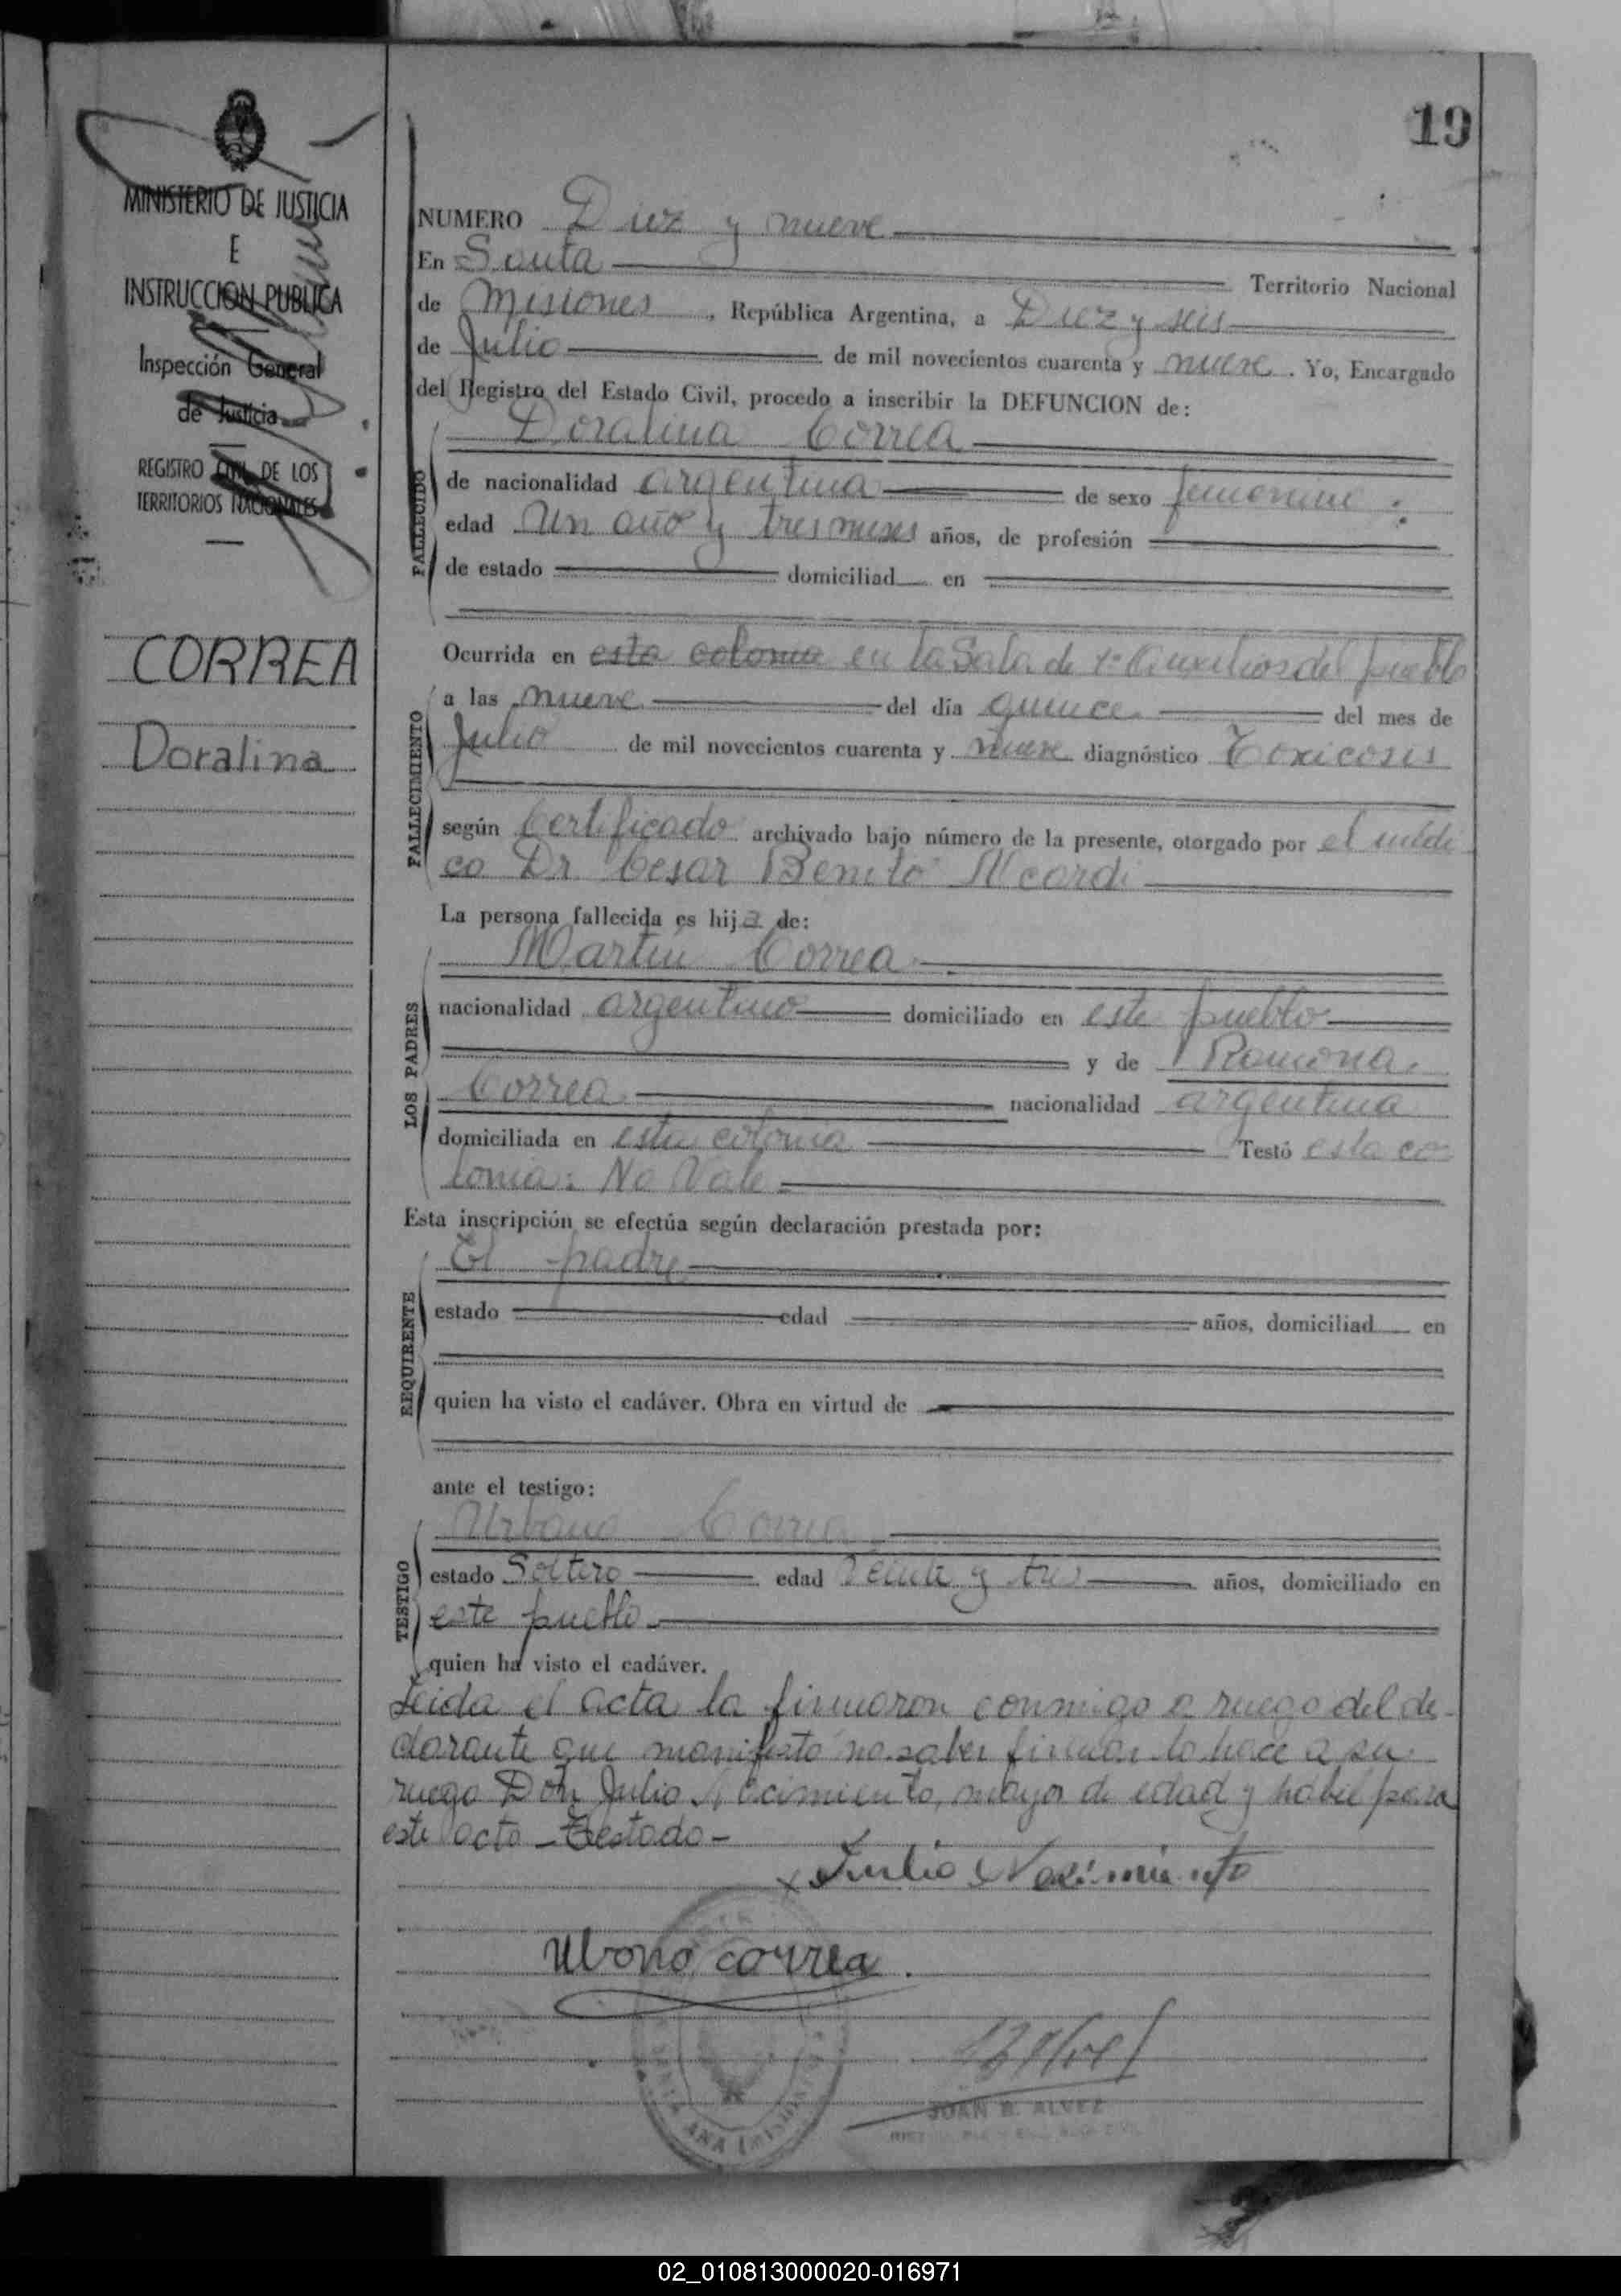 19
MINISTERIO DE JUSTICIA
E
INSTRUCCION PUBLICA
Inspección General
de Justicia
REGISTRO CIVIL DE LOS
TERRITORIOS NACIONALES
CORREA
Doralina
NUMERO Diez y nueve
En Santa Territorio Nacional
de Misiones, República Argentina, a Diez y seis
de Julio de mil novecientos cuarenta y nueve. Yo, Encargado
del Registro del Estado Civil, procedo a inscribir la DEFUNCION de:
Doralina Correa
FALLECIDO
de nacionalidad argentina de sexo femenino
edad Un año y tres meses años, de profesión
de estado domiciliad en
Ocurrida en esta colonia en la Sala de 1º Auxilios del pueblo
FALLECIMIENTO
a las nueve del día quince del mes de
Julio de mil novecientos cuarenta y nueve diagnóstico Toxicosis
según Certificado archivado bajo número de la presente, otorgado por el médi
co Dr. Cesar Benito
La persona fallecida es hija de:
LOS PADRES
Martin Correa
nacionalidad argentino domiciliado en este pueblo
y de Ramona
Correa nacionalidad argentina
domiciliada en esta colonia Testó esta co
lonia: No Vale
Esta inscripción se efectúa según declaración prestada por:
REQUIRENTE
El padre
estado edad años, domiciliad en
quien ha visto el cadáver. Obra en virtud de
ante el testigo:
TESTIGO
Urbano Correa
estado Soltero edad Veinte y tres años, domiciliado en
este pueblo
quien ha visto el cadáver.
Leida el acta la firmaron conmigo a ruego del de-
clarante que manifestó no saber firmar lo hace a su
ruego Don Julio Nacimiento, mayor de edad y habil para
este acto
Julio Nacimiento
correa
JUAN B. ALVEZ
02_010813000020-016971